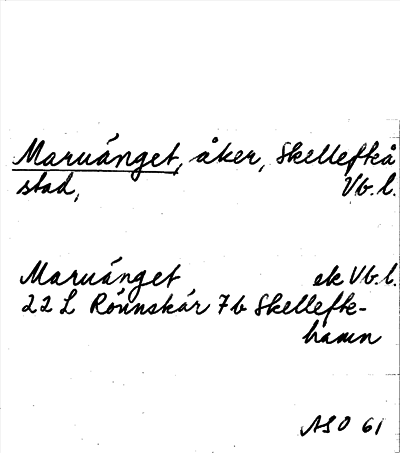 Maruänget, åker, Skellefteå
stad, Vb.l.
Maruänget ek Vb.l.
22 L Rönnskär 7b Skellefte-
hamn
ASO 61